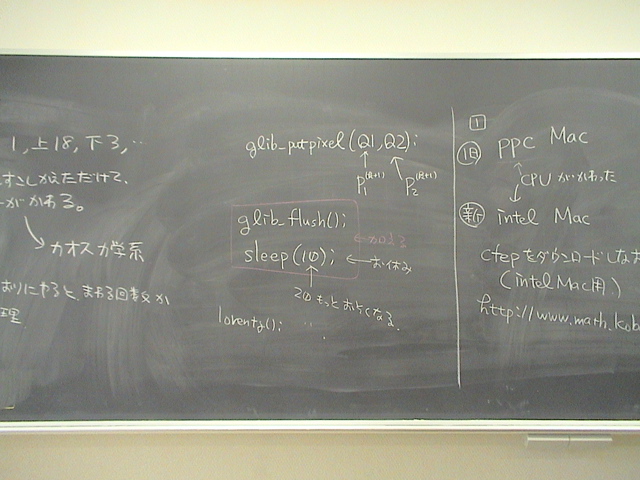 1, 上18, 下3, ‥
すこしかえただけで、
がかわる。
カオス力学系
おりにやると、まわる回数が
理
glib_putpixel(Q1,Q2);
P1(k+1) P2(k+1)
glib_flush();
加える
sleep(10);
お休み
20 もっとおそくなる.
lorentz();
1
旧 ppc Mac
CPUがかわった
新 intel Mac
cfepをダウンロードしなお
(intel Mac用)
http://www.math.kob